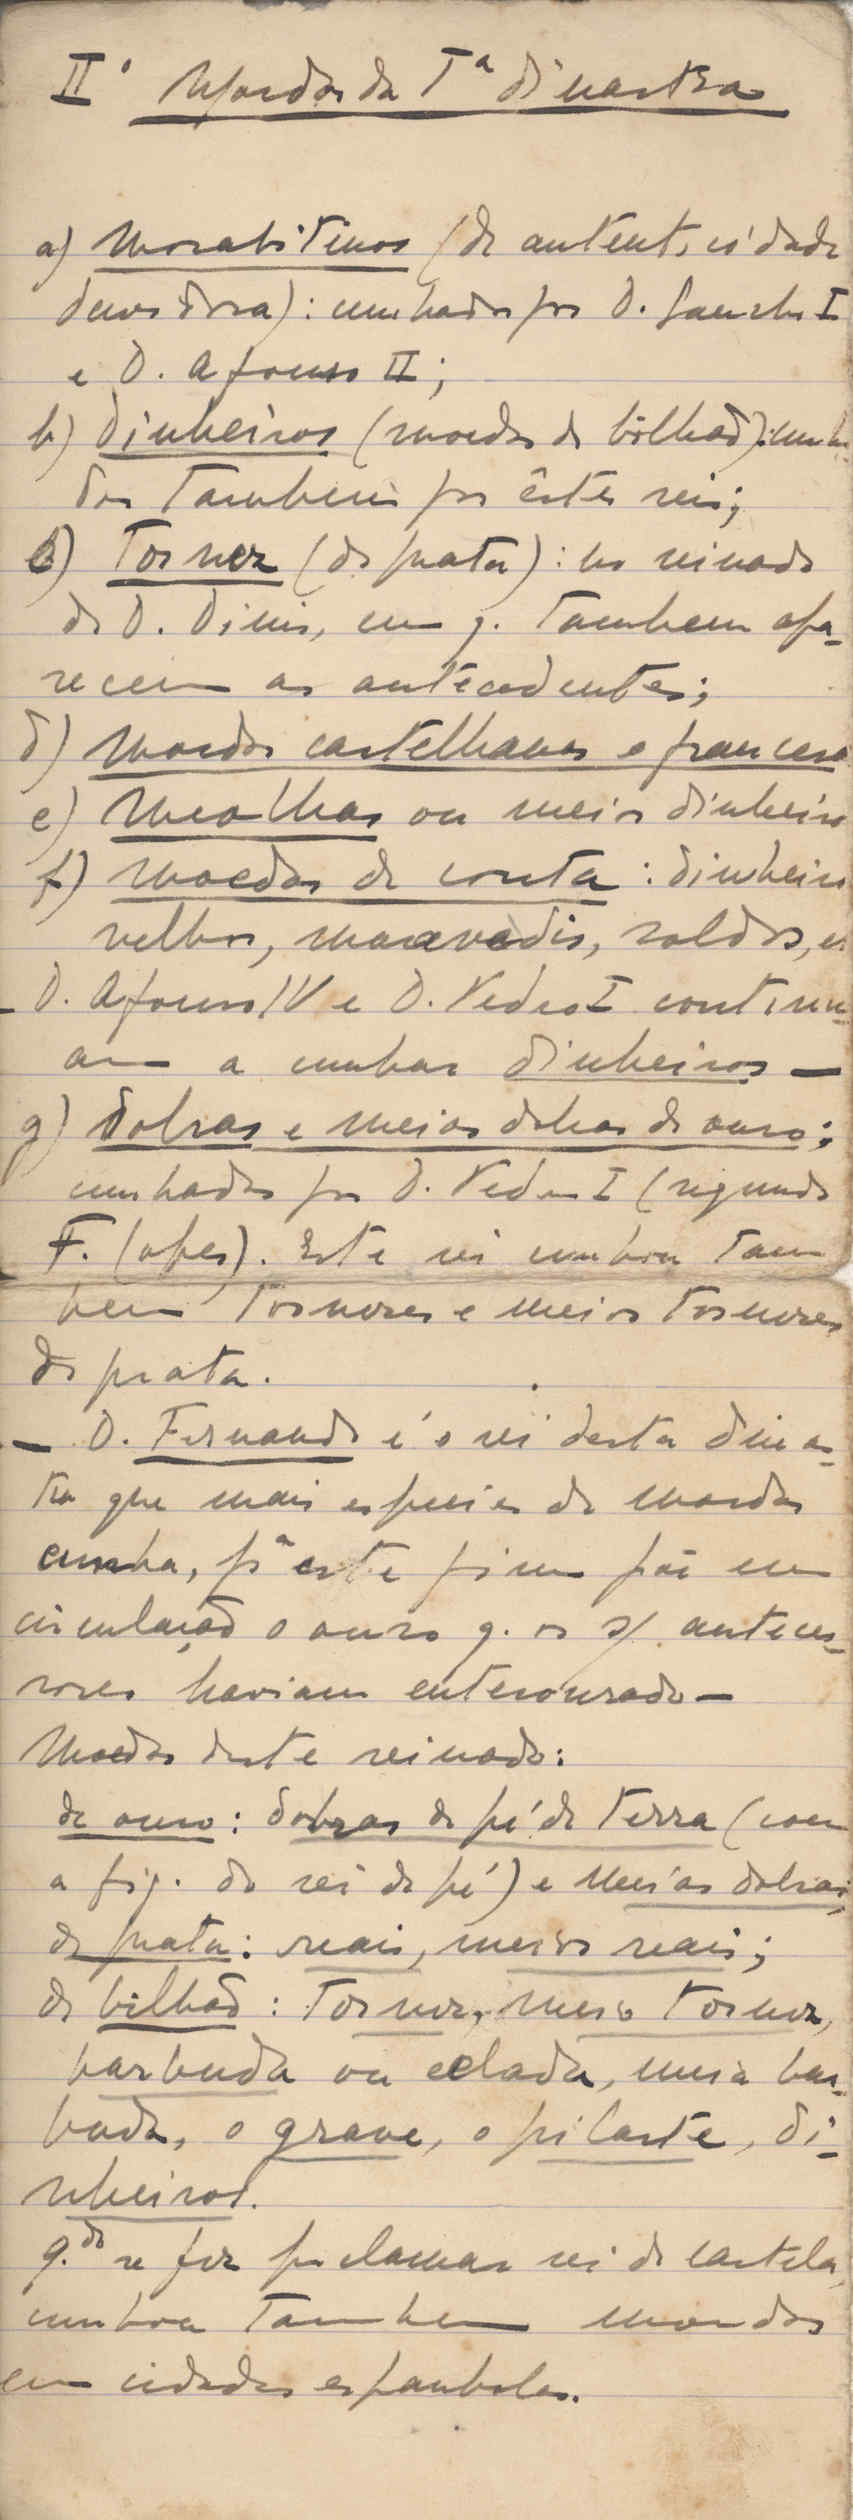 IIº Moedas da Iª dinastia
a) Morabitinos (de autenticidade
duvidosa): cunhados por D. Sancho I
e D. Afonso II;
b) Dinheiros (moedas de bilhão): cunha-
dos tambem por êstes reis;
c) Tornez (de prata): no reinado
de D. Dinis, em q. tambem apa-
recem as antecedentes;
d) Moedas castelhanas e francesas
e) Mealhas ou meios dinheiros
f) Moedas de conta: dinheiros
velhos, maravedis, soldos, etc
– D. Afonso IV e D. Pedro I continu-
am a cunhar dinheiros –
g) Dobras e meias dobras de ouro;
cunhadas por D. Pedro I (segundo
F. Lopes). Este rei cunhou tam
bem tornezes e meios tornezes
de prata.
– D. Fernando é o rei desta dinas-
tia que mais especies de moedas
cunha, pª este fim pôe em
circulação o ouro q. os s/ anteces-
sores haviam entesourado –
Moedas deste reinado:
de ouro: dobras de pé de terra (com
a fig. do rei de pé) e meias dobras;
de prata: reais, meios reais;
de bilhão: tornez, meio tornez,
barbuda ou celada, meia bar-
buda, o grave, o pilarte, di-
nheiros.
q.do se fez proclamar rei de Castela,
cunhou tambem moedas
em cidades espanholas.